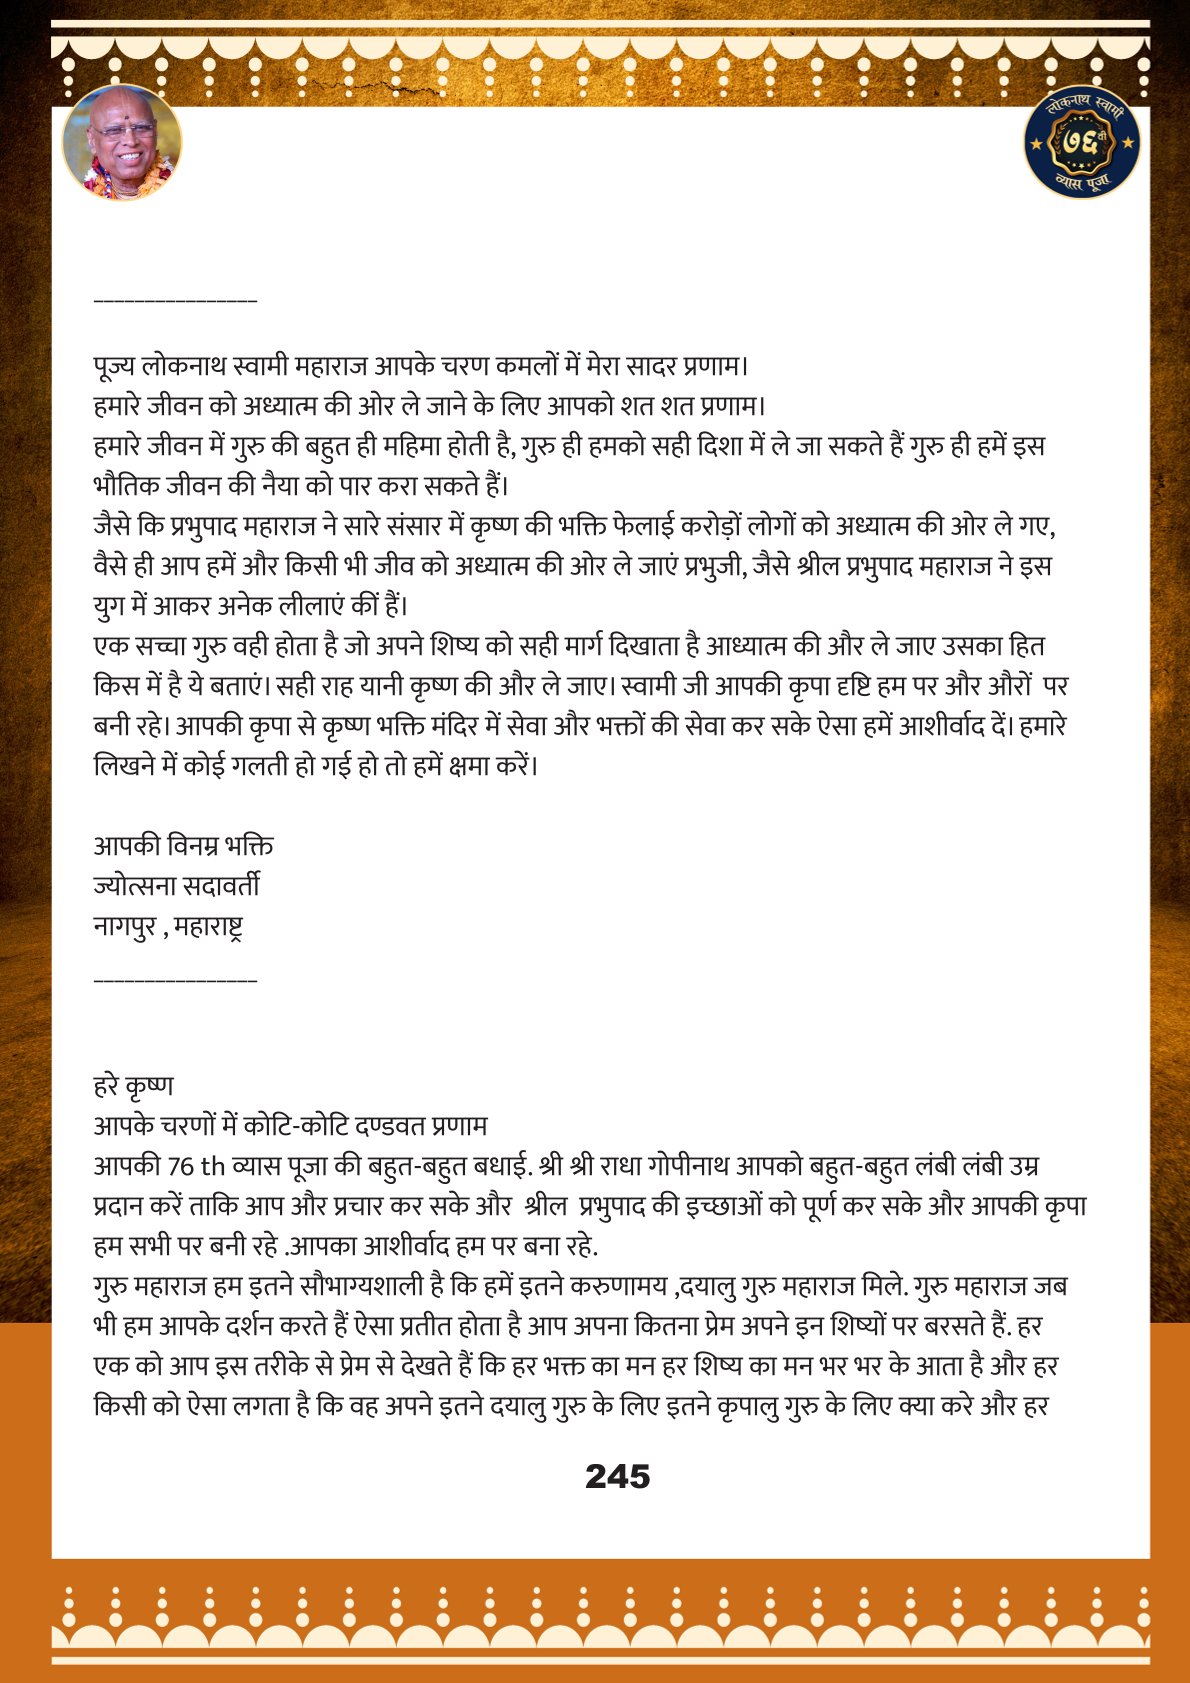 लोकनाथ स्वामी
७६वी
व्यास पूजा
________________
पूज्य लोकनाथ स्वामी महाराज आपके चरण कमलों में मेरा सादर प्रणाम।
हमारे जीवन को अध्यात्म की ओर ले जाने के लिए आपको शत शत प्रणाम।
हमारे जीवन में गुरु की बहुत ही महिमा होती है, गुरु ही हमको सही दिशा में ले जा सकते हैं गुरु ही हमें इस
भौतिक जीवन की नैया को पार करा सकते हैं।
जैसे कि प्रभुपाद महाराज ने सारे संसार में कृष्ण की भक्ति फेलाई करोड़ों लोगों को अध्यात्म की ओर ले गए,
वैसे ही आप हमें और किसी भी जीव को अध्यात्म की ओर ले जाएं प्रभुजी, जैसे श्रील प्रभुपाद महाराज ने इस
युग में आकर अनेक लीलाएं कीं हैं।
एक सच्चा गुरु वही होता है जो अपने शिष्य को सही मार्ग दिखाता है आध्यात्म की और ले जाए उसका हित
किस में है ये बताएं। सही राह यानी कृष्ण की और ले जाए। स्वामी जी आपकी कृपा दृष्टि हम पर और औरों  पर
बनी रहे। आपकी कृपा से कृष्ण भक्ति मंदिर में सेवा और भक्तों की सेवा कर सके ऐसा हमें आशीर्वाद दें। हमारे
लिखने में कोई गलती हो गई हो तो हमें क्षमा करें।
आपकी विनम्र भक्ति
ज्योत्सना सदावर्ती
नागपुर , महाराष्ट्र
________________
हरे कृष्ण
आपके चरणों में कोटि-कोटि दण्डवत प्रणाम
आपकी 76 th व्यास पूजा की बहुत-बहुत बधाई. श्री श्री राधा गोपीनाथ आपको बहुत-बहुत लंबी लंबी उम्र
प्रदान करें ताकि आप और प्रचार कर सके और  श्रील  प्रभुपाद की इच्छाओं को पूर्ण कर सके और आपकी कृपा
हम सभी पर बनी रहे .आपका आशीर्वाद हम पर बना रहे.
गुरु महाराज हम इतने सौभाग्यशाली है कि हमें इतने करुणामय ,दयालु गुरु महाराज मिले. गुरु महाराज जब
भी हम आपके दर्शन करते हैं ऐसा प्रतीत होता है आप अपना कितना प्रेम अपने इन शिष्यों पर बरसते हैं. हर
एक को आप इस तरीके से प्रेम से देखते हैं कि हर भक्त का मन हर शिष्य का मन भर भर के आता है और हर
किसी को ऐसा लगता है कि वह अपने इतने दयालु गुरु के लिए इतने कृपालु गुरु के लिए क्या करे और हर
245